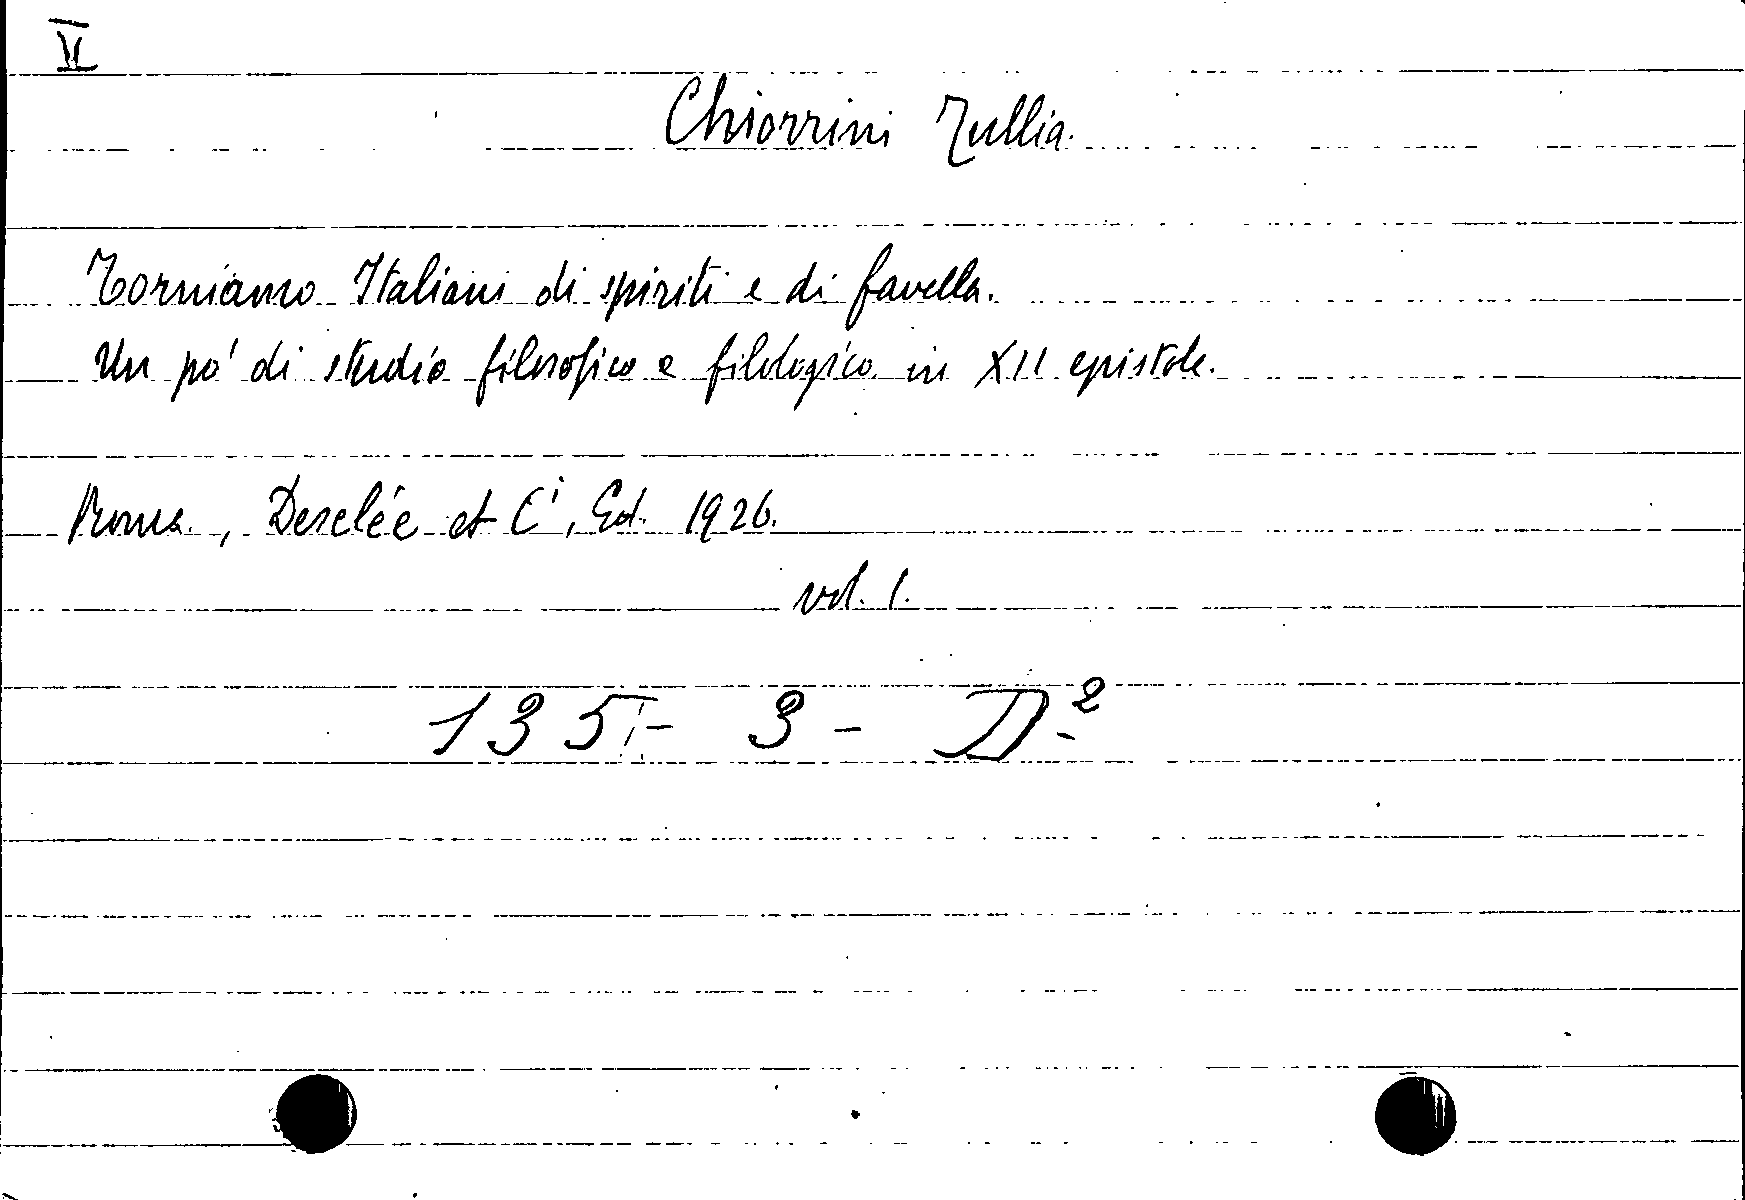 VI
Chiorrini Tullia.
Torniamo Italiani di spiriti e di favella.
Un po' di studio filosofico e filologico in XII epistole.
Roma, Desclée et Ci, Ed. 1926.
vol. 1.
135 - 3 - D²